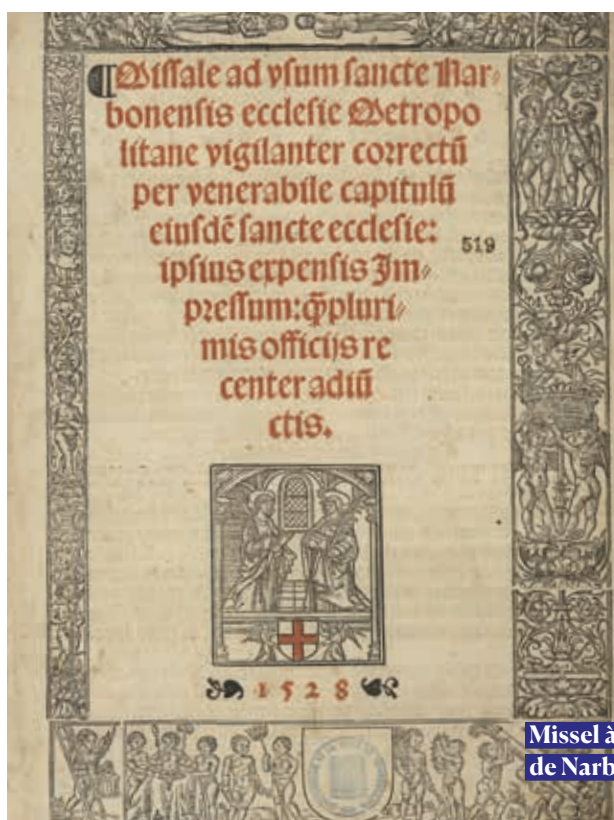 ¶Missale ad vsum sancte Nar⸗
bonensis ecclesie Metropo
litane vigilanter correctū
per venerabile capitulū
eiusdē sancte ecclesie:
519
ipsius expensis Im⸗
pressum: q̄pluri⸗
mis officijs re
center adiū
ctis.
1528
Missel à
de Narb